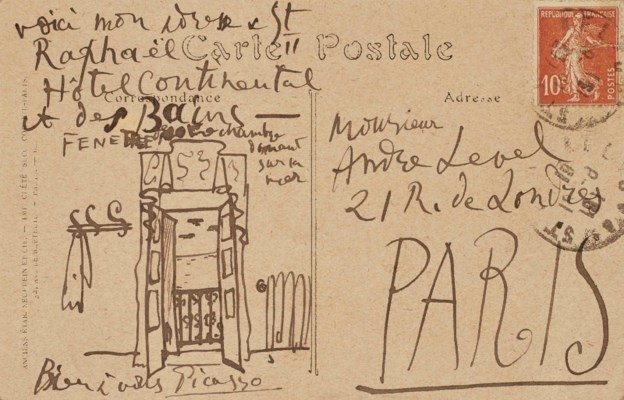 voici mon adresse St
Raphaël
Hôtel Continental
et des Bains —
FENETRE chambre
donnant
sur la
mer
Bien à vous Picasso
Carte Postale
Correspondance
Adresse
REPUBLIQUE FRANÇAISE
10c
POSTES
Monsieur
Andre Level
21 R. de Londres
PARIS